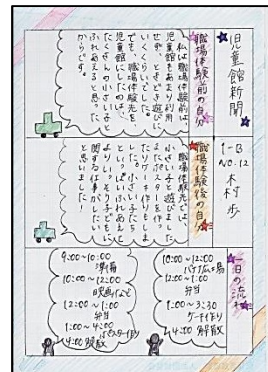 児童館新聞
1-B
NO.12 木村 歩
職場体験前の自分
私は職場体験前は、
児童館をあまり利用
せず、ときどき遊びに
いくくらいでした。
でも、職場体験先を
児童館にしたのは、
たくさんの小さい子と
ふれあえると思った
からです。
職場体験後の自分
職場体験先では、
小さい子と遊びました。
またポスターを作っ
たりケーキ作りもしま
した。小さい子たち
といっぱいふれあえて
よりいっそう子どもに
関する仕事がしたい
と思いました。
一日の流れ
9:00~10:00
準備
10:00~12:00
映画作など
12:00~1:00
弁当
1:00~4:00
ポスター作り
4:00 解散
10:00~12:00
12:00~1:00
弁当
1:00~3:30
ケーキ作り
4:00 解散